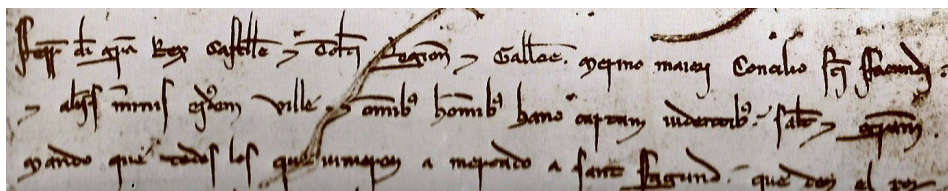 Ferr di gra Rex Castelle ⁊ Toleti Legion ⁊ Gallecie. merino maiori Concilio sci Facundi
⁊ aliis eiusdem ville ⁊ omnibʒ hominibʒ hanc cartam videntibʒ salt ⁊ gram
Mando que todos los que vinieren a mercado a sant Fagund que den el por